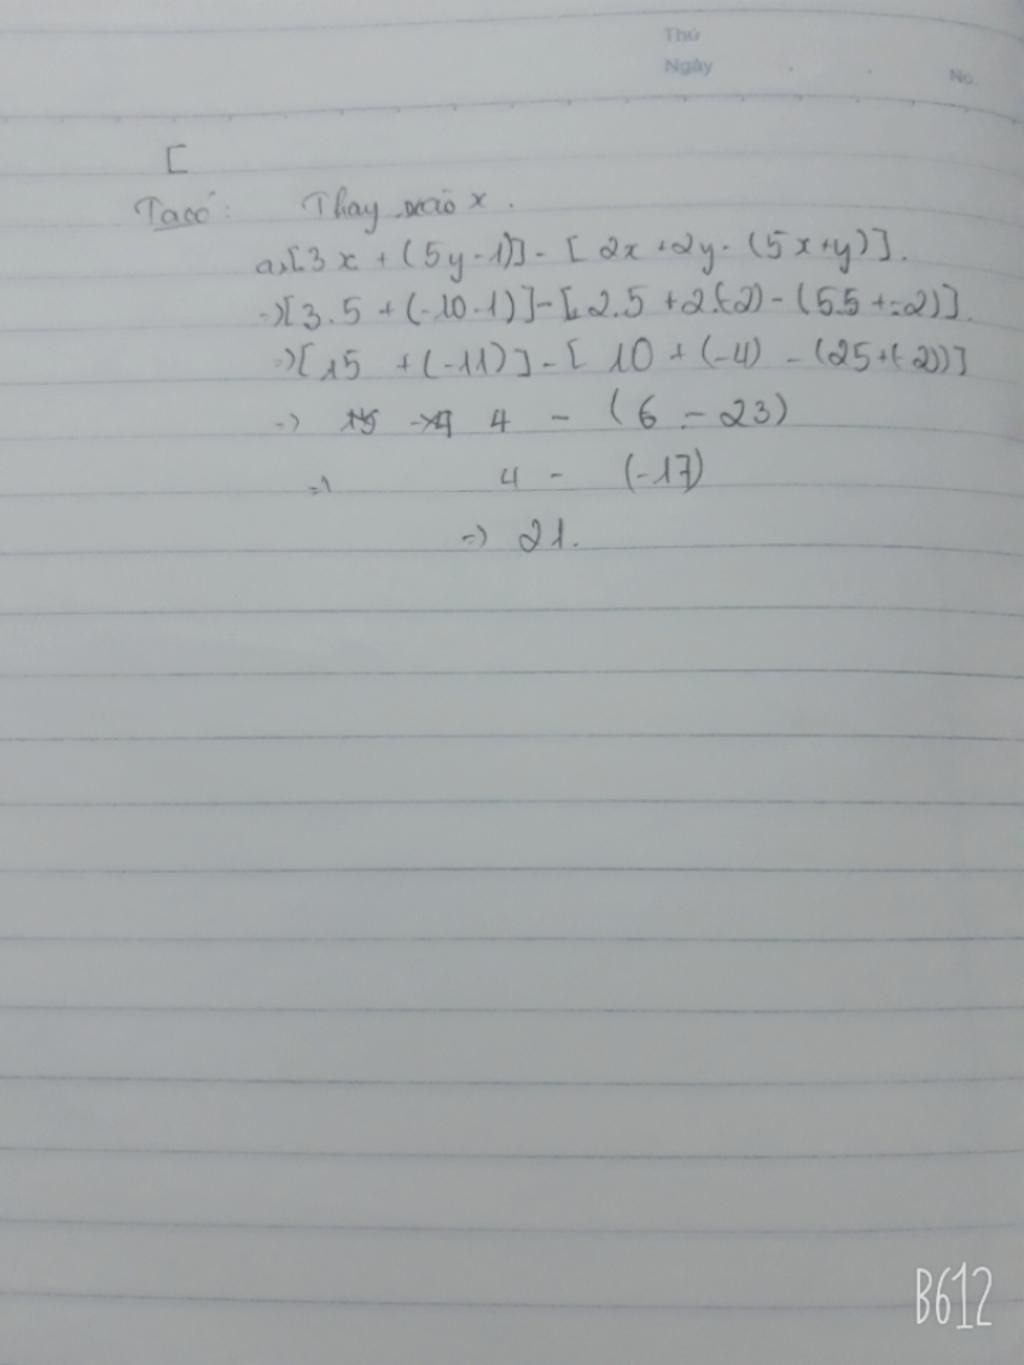 Thứ
Ngày . . No.
[
Ta có: Thay vào x.
a,[3x + (5y-1)] - [2x+2y-(5x+y)].
=>[3.5 + (-10-1)]-[2.5 + 2.(-2) - (5.5 + -2)].
=>[15 + (-11)] - [10 + (-4) - (25+(-2))]
=> 4 - (6 - 23)
=> 4 - (-17)
=> 21.
B612